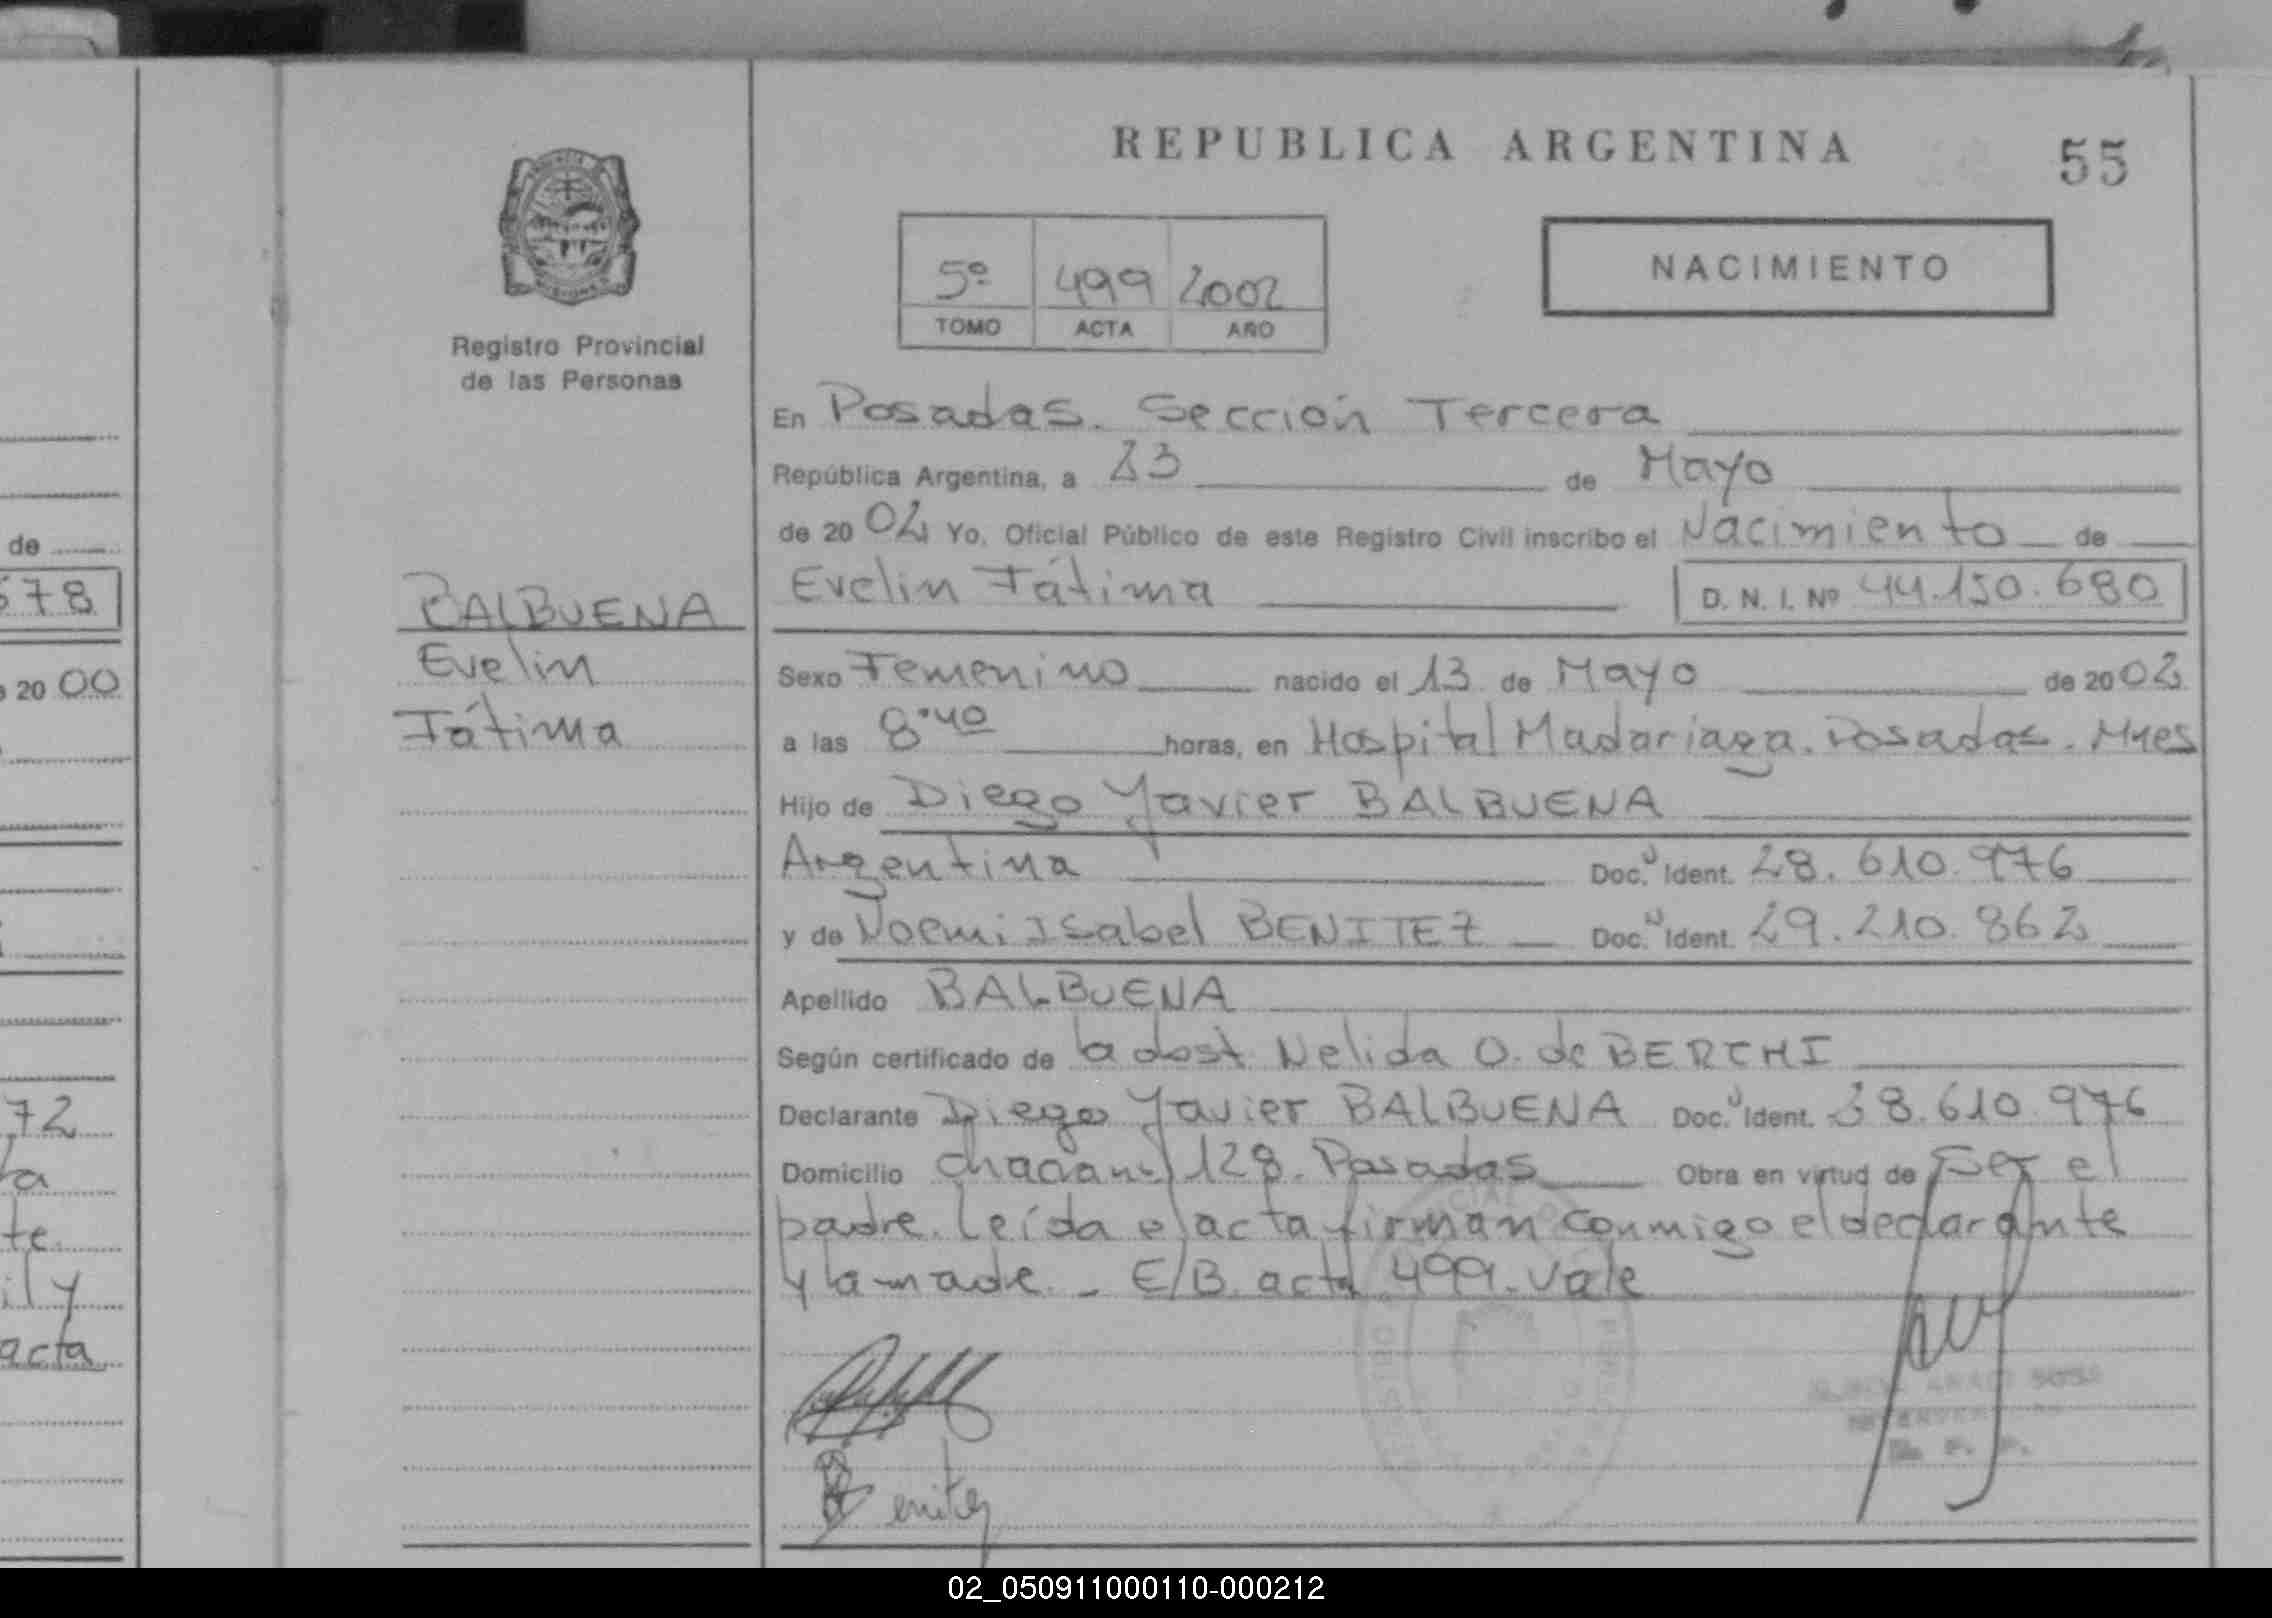 REPUBLICA ARGENTINA
55
5º 499 2002
TOMO ACTA AÑO
NACIMIENTO
Registro Provincial
de las Personas
En Posadas. Sección Tercera
República Argentina, a 23 de Mayo
de 2002 Yo, Oficial Público de este Registro Civil inscribo el Nacimiento de
Evelin Fátima D. N. I. Nº 44.150.680
BALBUENA
Evelin
Fátima
Sexo Femenino nacido el 13 de Mayo de 2002
a las 8·40 horas, en Hospital Madariaga. Posadas. Mnes
Hijo de Diego Javier BALBUENA
Argentina Doc. Ident. 28.610.976
y de Noemi Isabel BENITEZ Doc. Ident. 29.210.862
Apellido BALBUENA
Según certificado de la obst. Nelida O. de BERCHI
Declarante Diego Javier BALBUENA Doc. Ident. 28.610.976
Domicilio 128. Posadas Obra en virtud de Ser el
padre. Leída el acta firman conmigo el declarante
y la madre. - E/B. acta 499. Vale
Benitez
de
578
2000
72
te
ily
acta
02_050911000110-000212